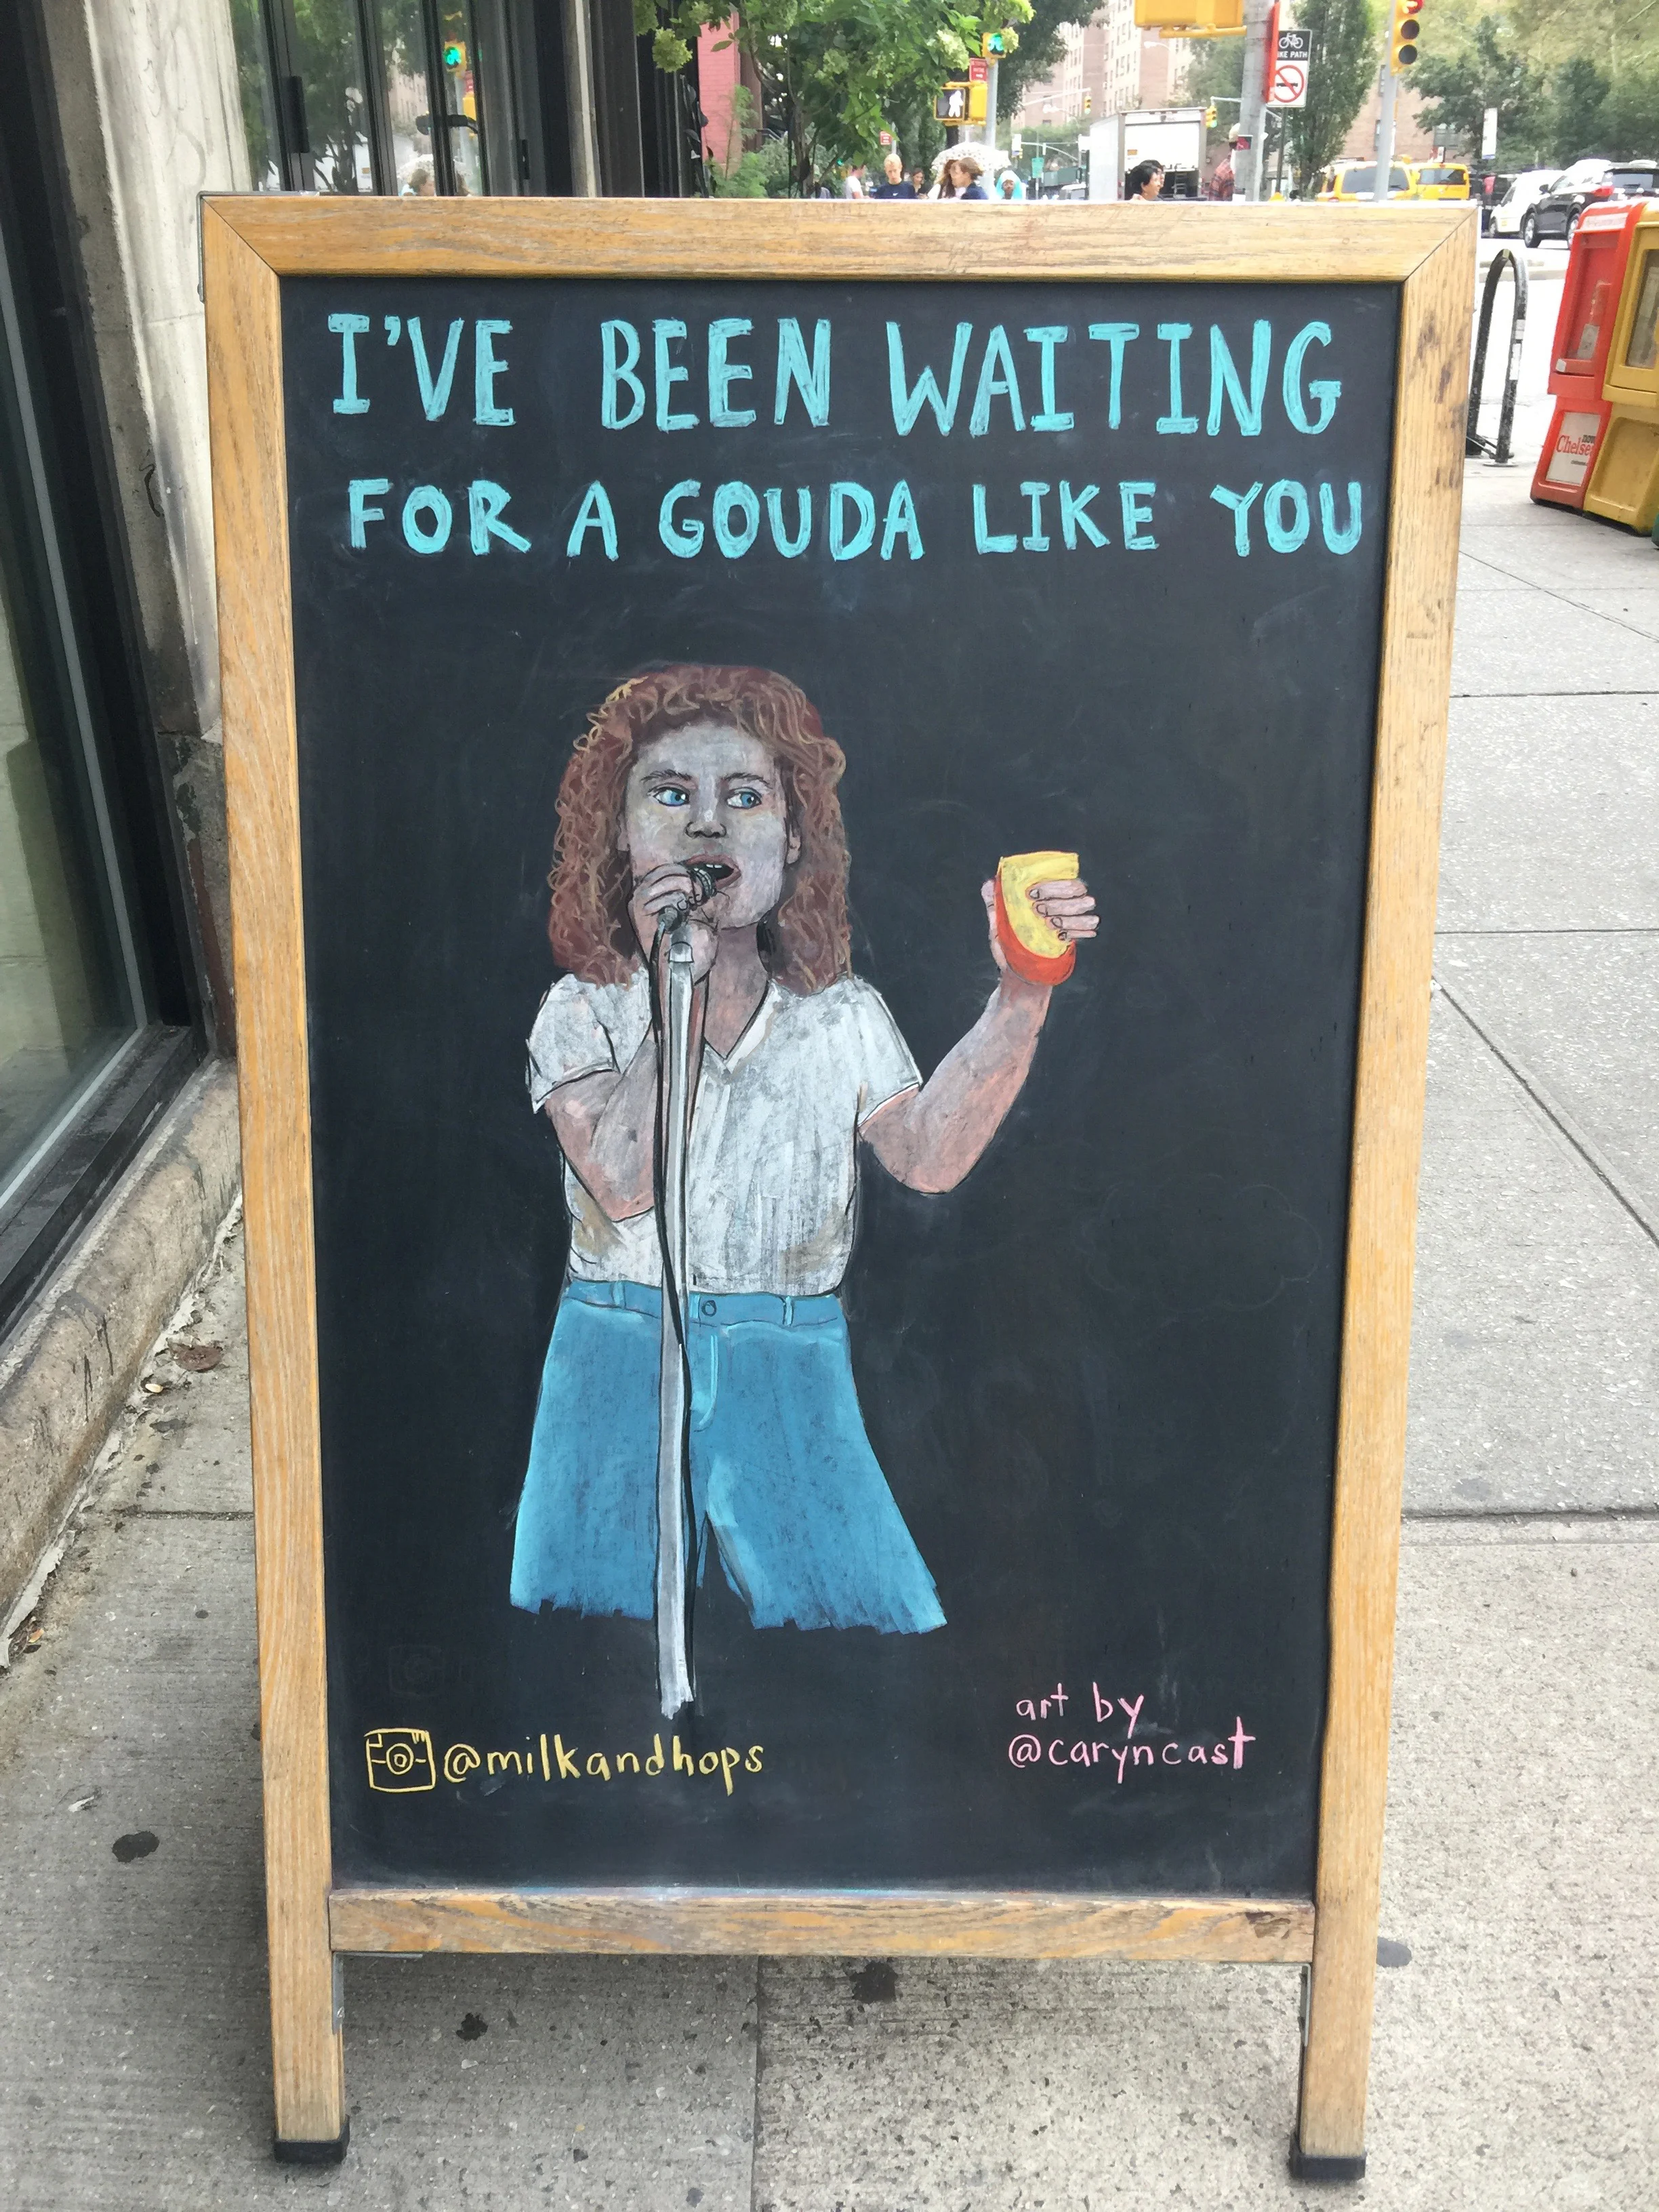 I'VE BEEN WAITING
FOR A GOUDA LIKE YOU
@milkandhops
art by
@caryncast
BIKE PATH
Chelsea